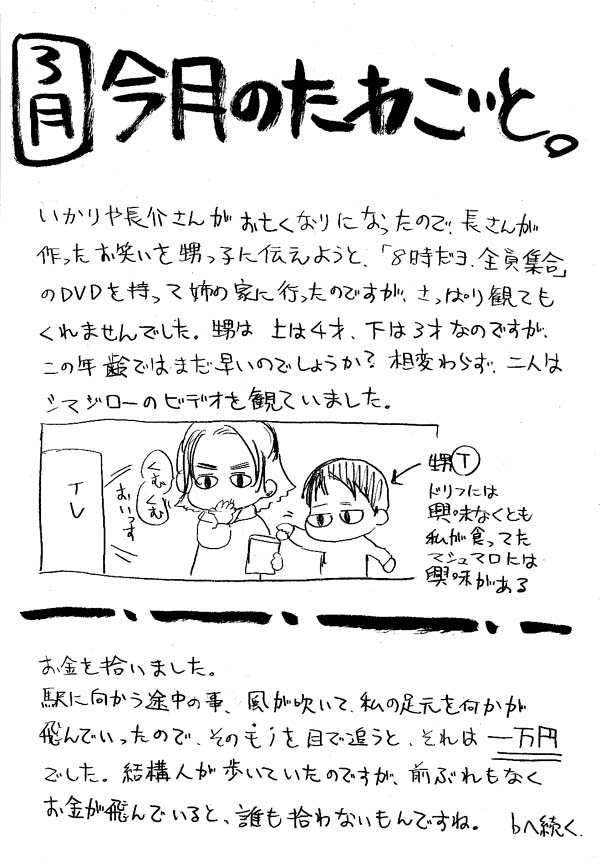 3月
今月のたわごと。
いかりや長介さんがお亡くなりになったので、長さんが
作ったお笑いを甥っ子に伝えようと、「8時だヨ、全員集合」
のDVDを持って姉の家に行ったのですが、さっぱり観ても
くれませんでした。甥は上は4才、下は3才なのですが、
この年齢ではまだ早いのでしょうか?相変わらず、二人は
シマジローのビデオを観ていました。
TV
おいっす
くむくむ
甥T
ドリフには
興味なくとも
私が食ってた
マシュマロには
興味がある
お金を拾いました。
駅に向かう途中の事、風が吹いて、私の足元を何かが
飛んでいったので、そのモノを目で追うと、それは一万円
でした。結構人が歩いていたのですが、前ぶれもなく
お金が飛んでいると、誰も拾わないもんですね。 bへ続く.